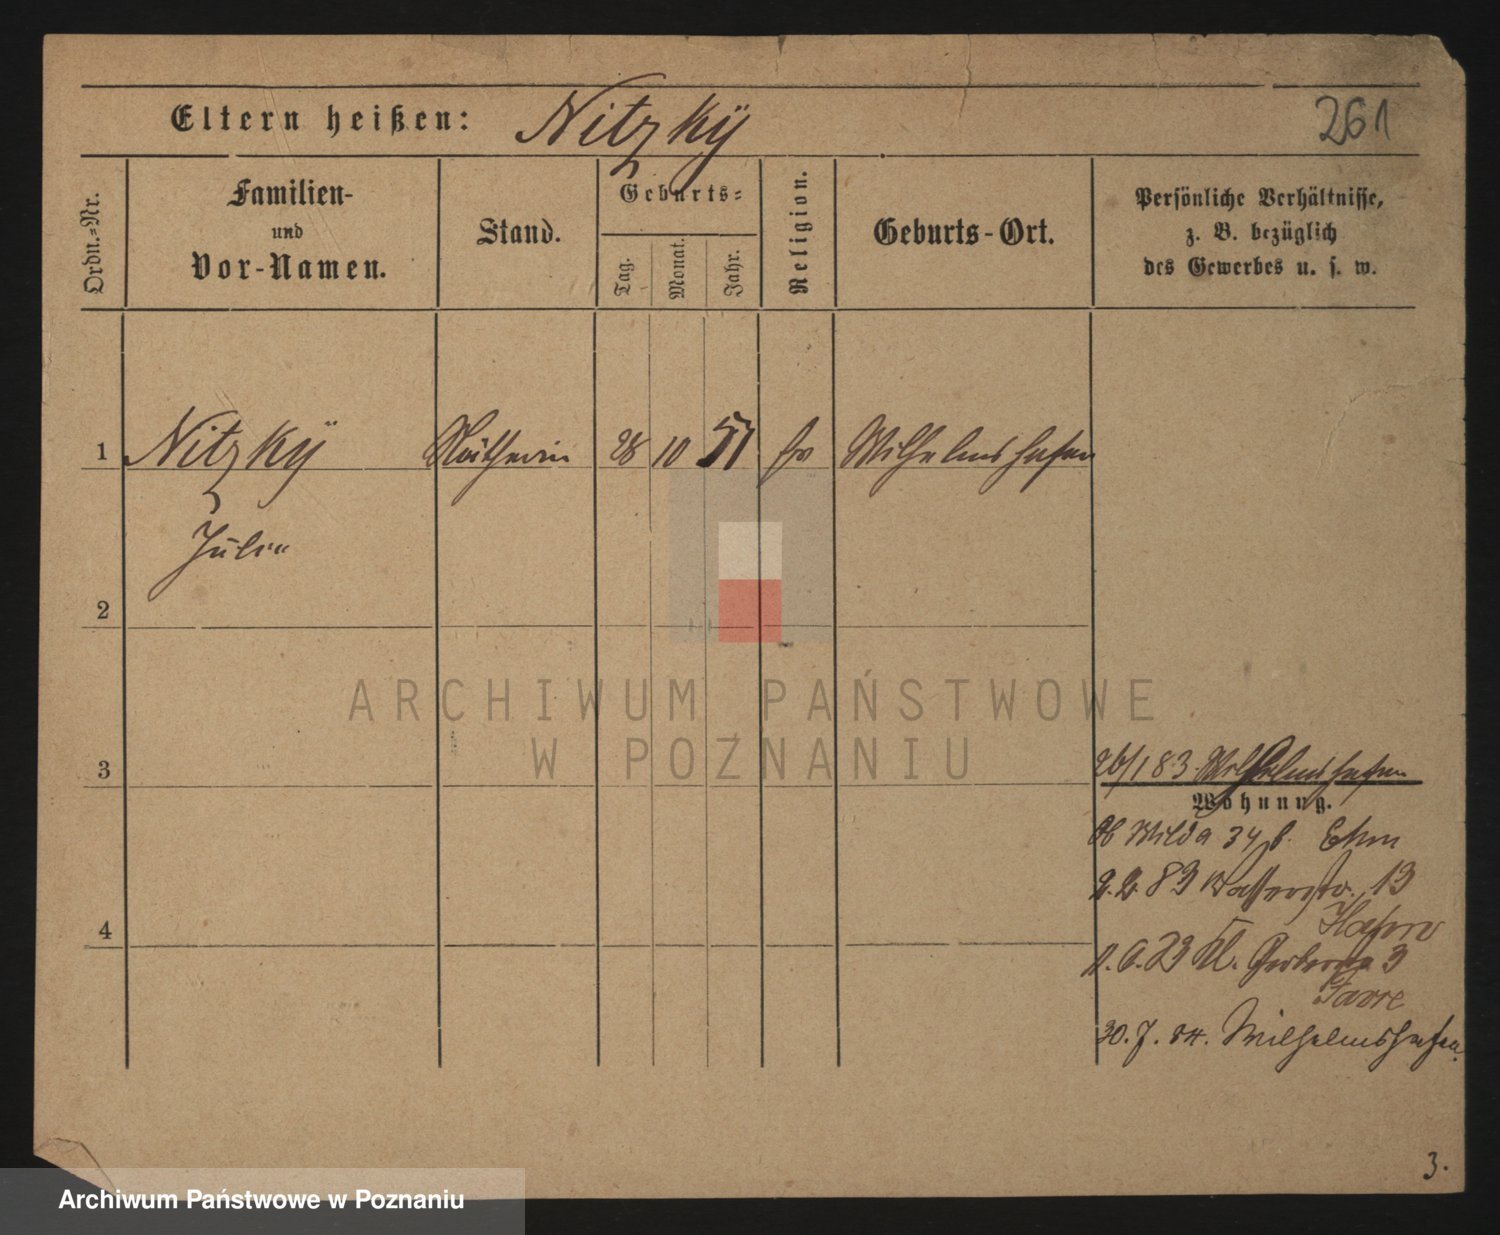 Eltern heißen: Nitzky
261
Ordn.=Nr.
Familien-
und
Vor-Namen.
Stand.
Geburts=
Tag.
Monat.
Jahr.
Religion.
Geburts-Ort.
Persönliche Verhältnisse,
z. B. bezüglich
des Gewerbes u. s. w.
1 Nitzky Nätherin 28 10 51 Wilhelmshafen
Julie
2
3
26/1 83. Wilhelmshafen
Wohnung.
Wilda 34
2.2.83 Wasserstr. 13
4
Kl. Gerberstr 3
30. 7. 84. Wilhelmshafen.
3.
ARCHIWUM PAŃSTWOWE
W POZNANIU
Archiwum Państwowe w Poznaniu